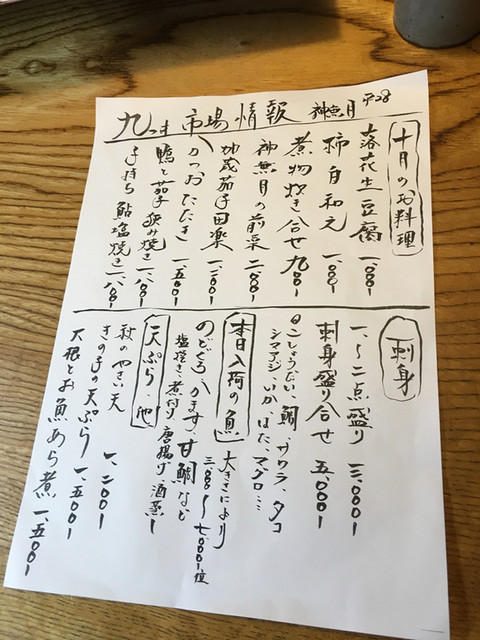 九つ井 市場情報 神無月 平28
十月のお料理
落花生豆腐 一、〇〇〇ー
柿白和え 一、〇〇〇ー
煮物炊き合せ 九〇〇ー
神無月の前菜 二、〇〇〇ー
加茂茄子田楽 一、二〇〇ー
かつおたたき 一、五〇〇ー
鴨と茄子挟み焼き 一、八〇〇ー
子持ち鮎塩焼き 一、八〇〇ー
刺身
一、〜二点盛り 三、〇〇〇ー
刺身盛り合せ 五、〇〇〇ー
こしょうだい、鯛、サワラ、タコ
シマアジ、いか、はた、マグロ…
本日入荷の魚 大きさにより
のどぐろ、かます、甘鯛など 三、〇〇〇ー〜七、〇〇〇ー位
塩焼き、煮付け、唐揚げ、酒蒸し
天ぷら、他
秋のやさい天 一、二〇〇ー
きの子の天ぷら 一、五〇〇ー
大根とお魚あら煮 一、五〇〇ー